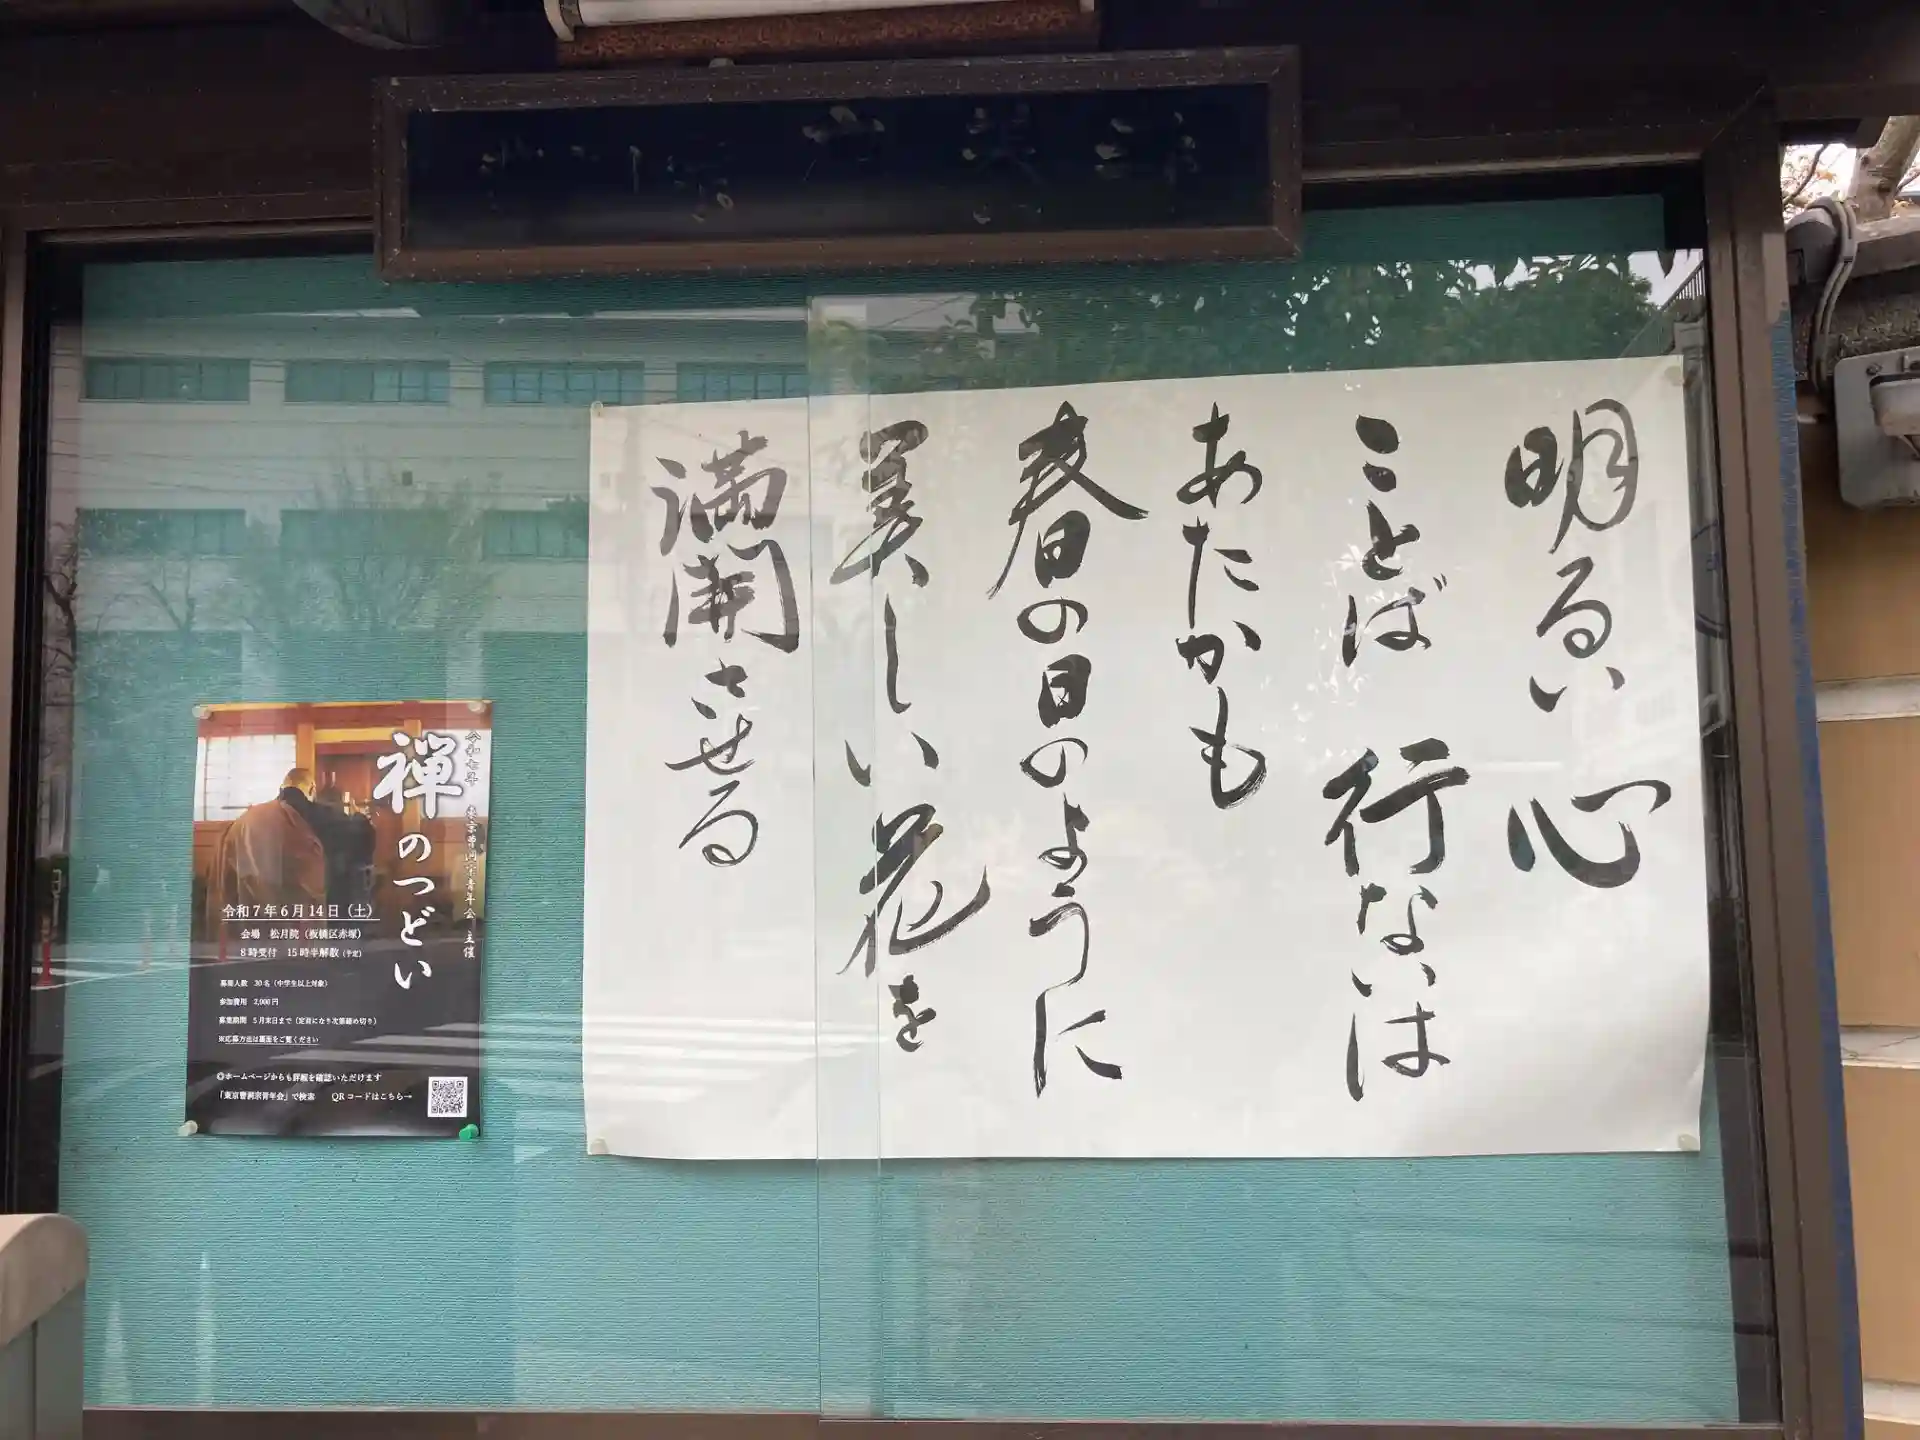 明るい心
ことば 行ないは
あたかも
春の日のように
美しい花を
満開させる
令和七年 東京曹洞宗青年会 主催
禅のつどい
令和7年6月14日（土）
会場 松月院（板橋区赤塚）
8時受付 15時半解散（予定）
募集人数 30名（中学生以上対象）
参加費用 2,000円
募集期間 5月末日まで（定員になり次第締め切り）
※応募方法は裏面をご覧ください
◎ホームページからも詳細を確認いただけます
「東京曹洞宗青年会」で検索 QRコードはこちら→